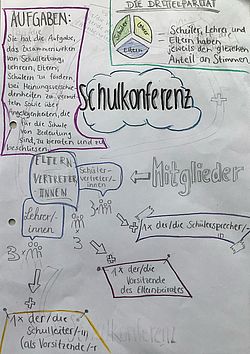 AUFGABEN:
Sie hat die Aufgabe,
das Zusammenwirken
von Schulleitung,
Lehrern, Eltern,
Schülern zu fördern
bei Meinungsverschie-
denheiten zu vermit-
teln sowie über
Angelegenheiten, die
für die Schule
von Bedeutung
sind, zu beraten und zu
beschliessen.
DIE DRITTELPARITÄT
Schüler
Lehrer
Eltern
Schüler, Lehrer, und
Eltern haben
jeweils den gleichen
Anteil an Stimmen
Schulkonferenz
ELTERN
VERTRETER
INNEN
Schüler-
vertreter/-
innen
Mitglieder
Lehrer/-
innen
3x
3x
3x
+
1x der/die Schülersprecher/-
+
1x der/die
Vorsitzende
des Elternbeirates
+
1x der/die
Schulleiter/-in
(als Vorsitzende/-r